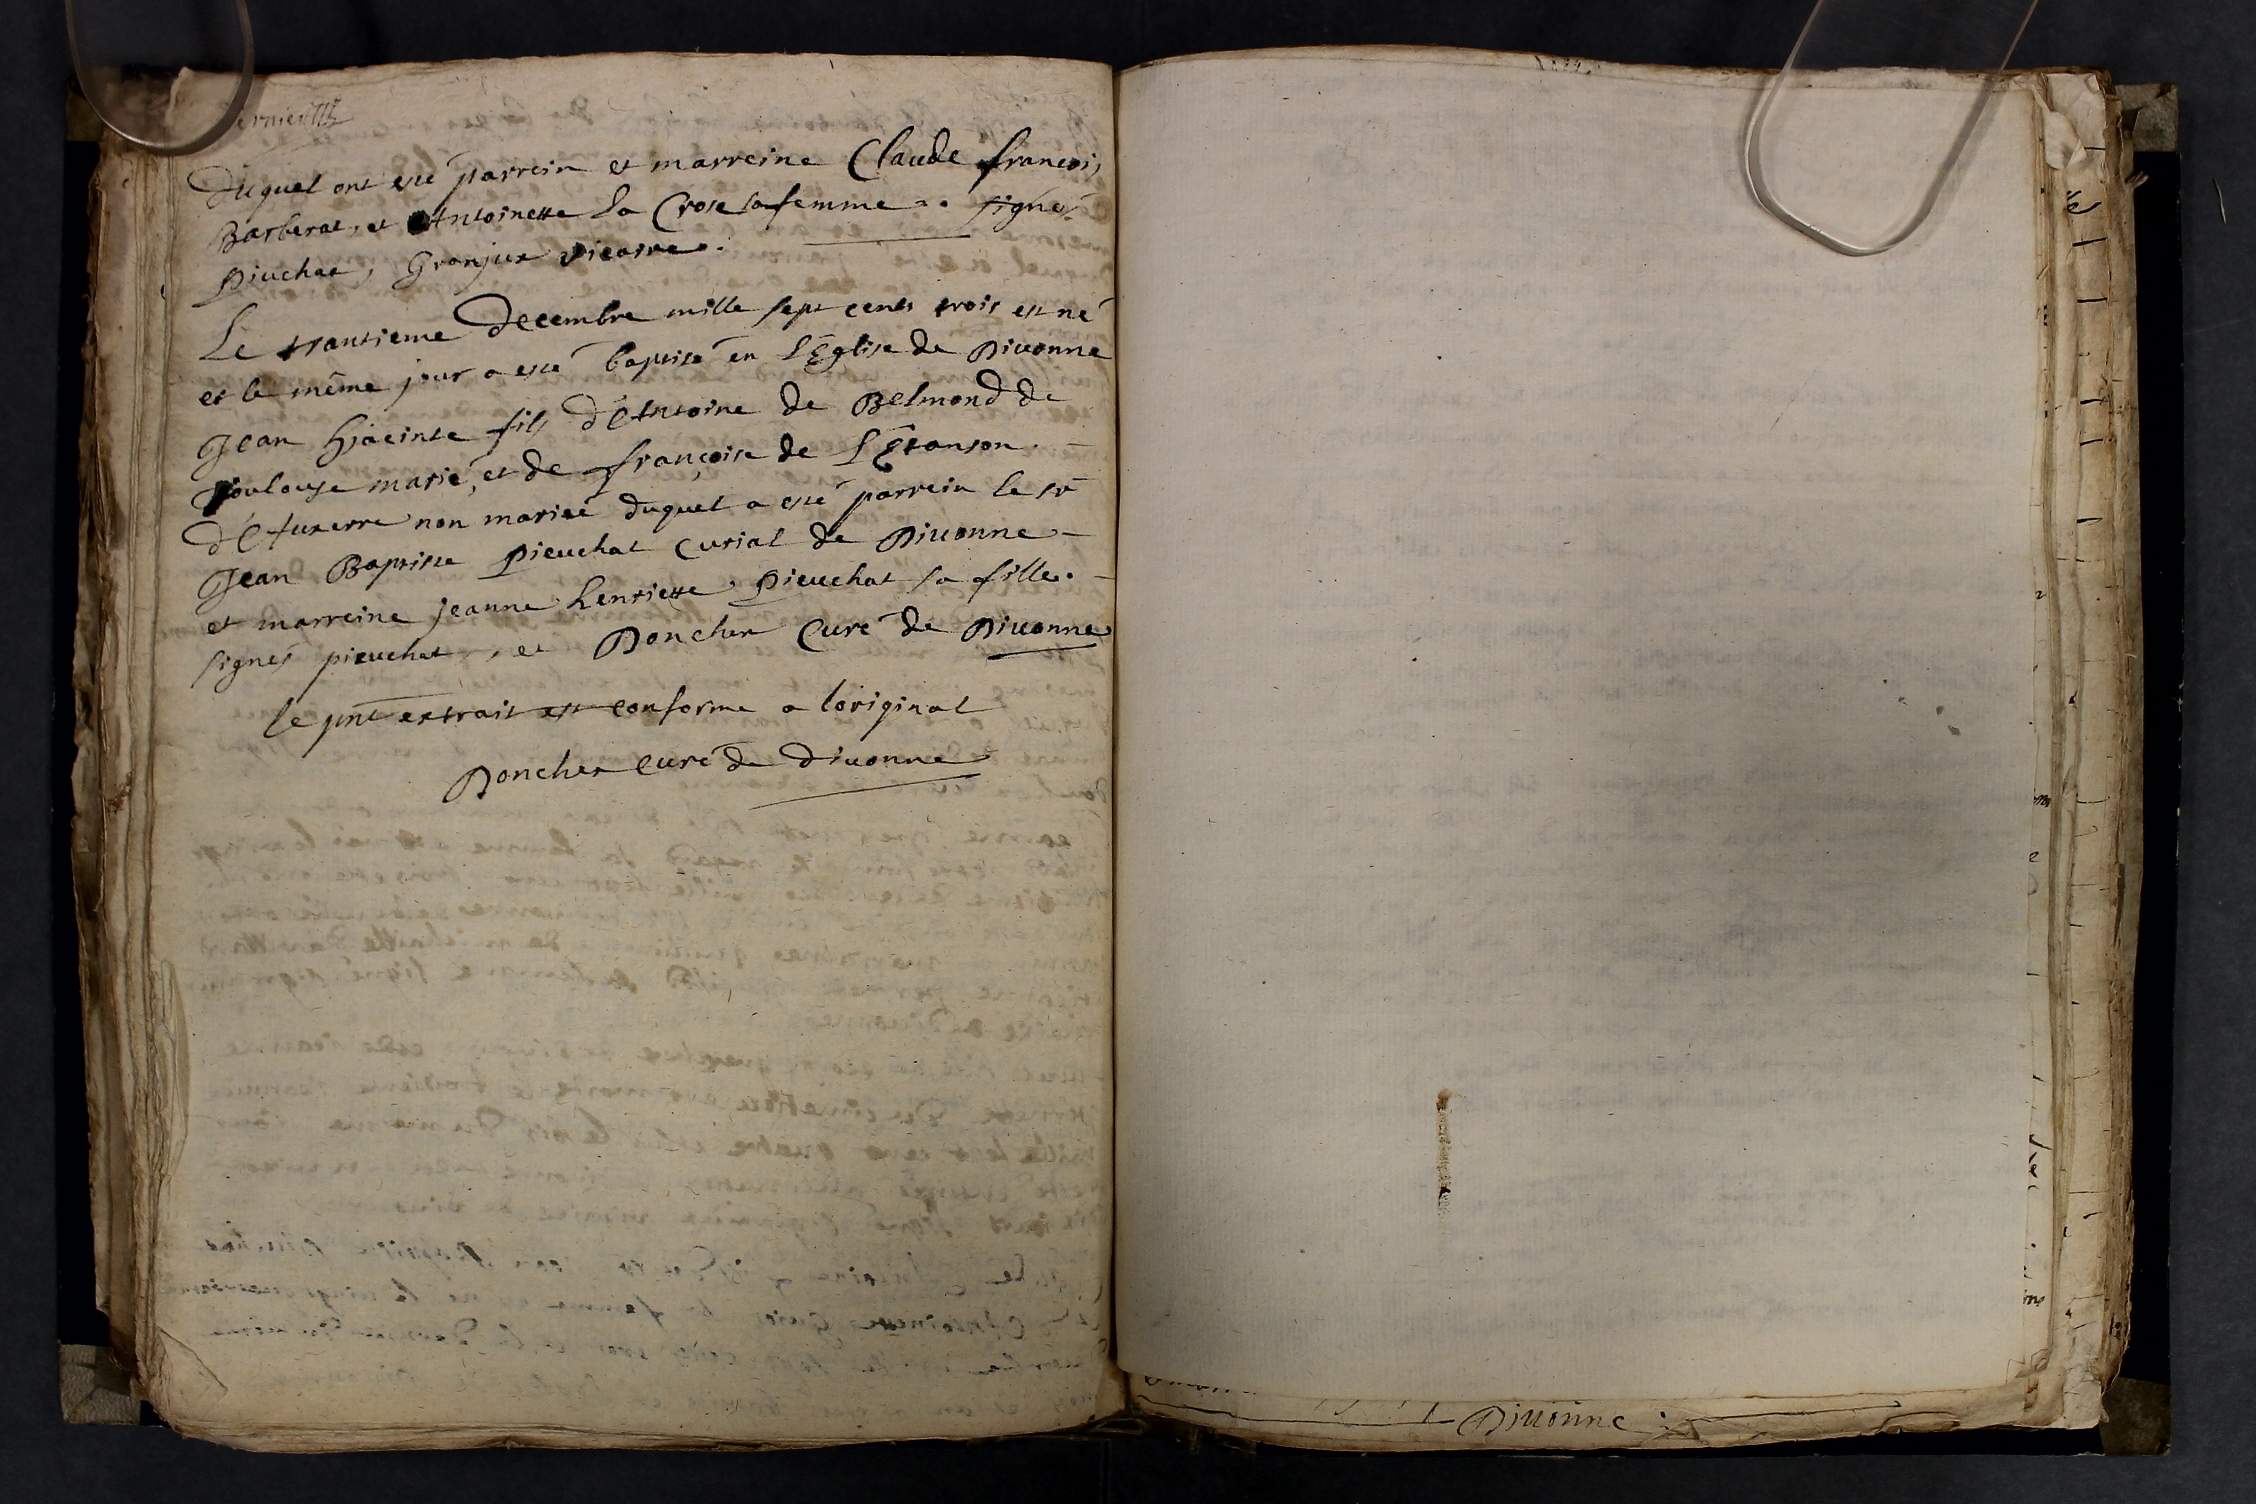 Duquel ont esté parrein et marreine Claude françois
Barberat, et Antoinette La Crose sa femme. signés
Piuchat, Granjux vicaire.
Le trantieme Decembre mille sept cents trois est né
et le même jour a esté baptisé en L'Eglise de Diuonne
Jean hjacinte fils d'Antoine de Belmond de
Toulouse marié, et de françoise de L'Etanson
d'Auxerre non mariée duquel a esté parrein le sr
Jean Baptiste Pieuchat curial de Diuonne
et marreine jeanne henriette Pieuchat sa fille.
signés pieuchat, et Poncher Curé de Diuonne
le pnt extrait est conforme a loriginal
Poncher curé de diuonne
Diuonne